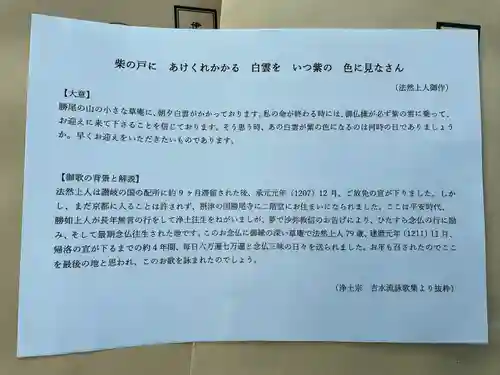 柴の戸に　あけくれかかる　白雲を　いつ紫の　色に見なさん
（法然上人御作）
【大意】
勝尾の山の小さな草庵に、朝夕白雲がかかっております。私の命が終わる時には、御仏様が必ず紫の雲に乗って、
お迎えに来て下さることを信じております。そう思う時、あの白雲が紫の色になるのは何時の日でありましょう
か。早くお迎えをいただきたいものであります。
【御歌の背景と解説】
法然上人は讃岐の国の配所に約９ヶ月滞留された後、承元元年（1207）12月、ご放免の宣が下りました。しか
し、まだ京都に入ることは許されず、摂津の国勝尾寺に二階堂にお住まいになられました。ここは平安時代、
勝如上人が長年無言の行をして浄土往生をねがいましが、夢で沙弥教信のお告げにより、ひたすら念仏の行に励
み、そして最期念仏往生された地です。このお念仏に御縁の深い草庵で法然上人79歳、建暦元年（1211）11月、
帰洛の宣が下るまでの約４年間、毎日六万遍七万遍と念仏三昧の日々を送られました。お年も召されたのでここ
を最後の地と思われ、このお歌を詠まれたのでしょう。
（浄土宗　吉水流詠歌集より抜粋）